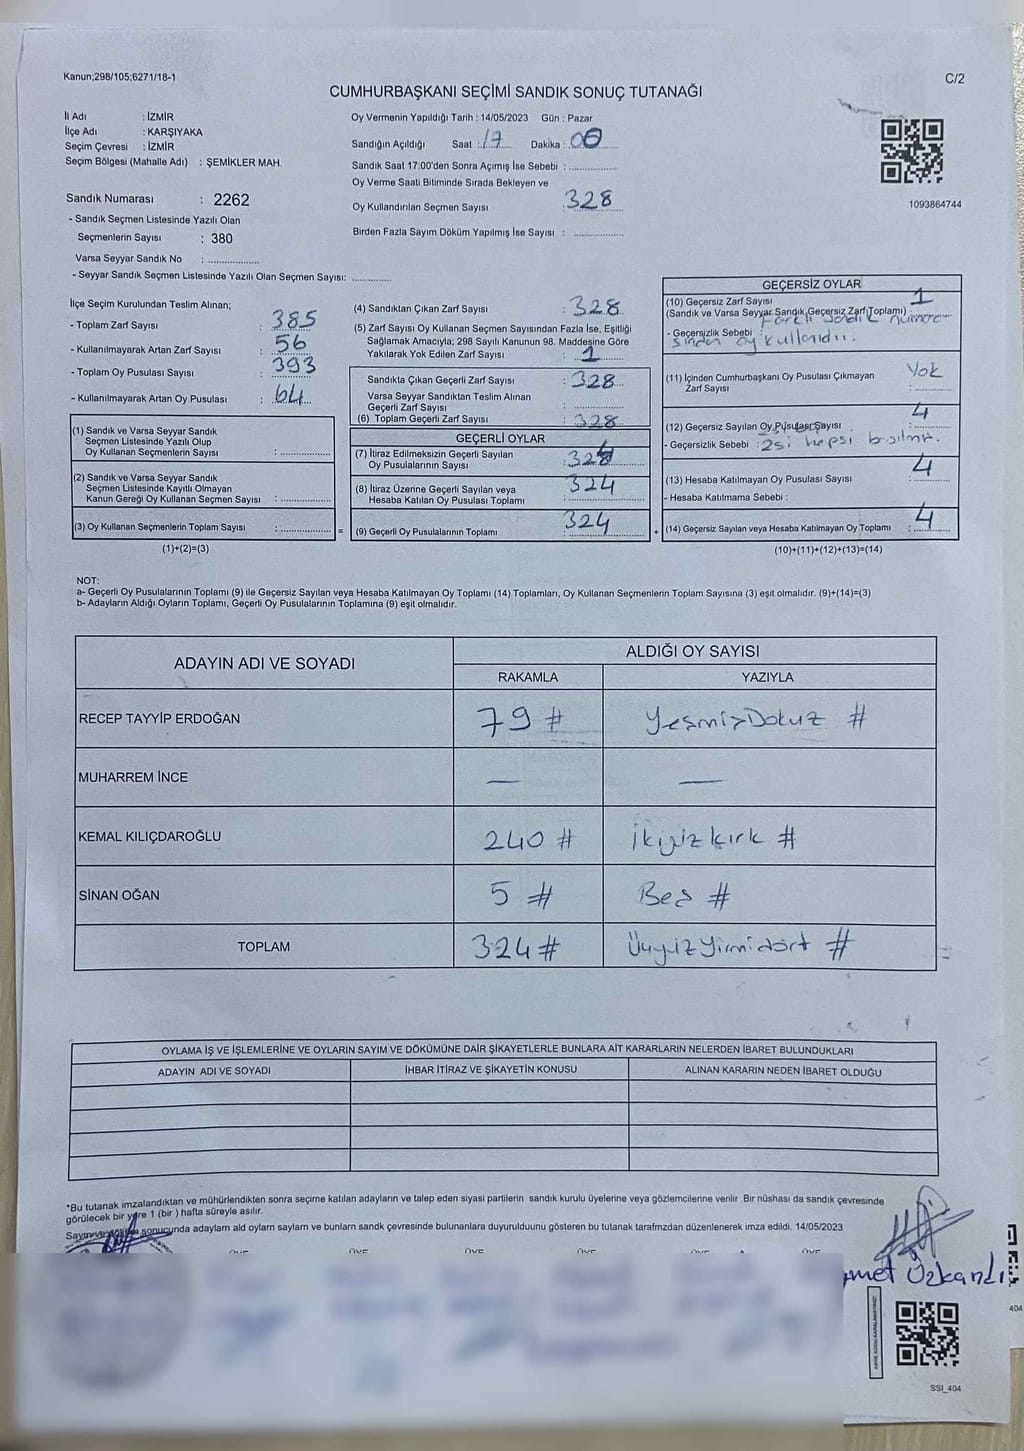 Kanun;298/105;6271/18-1
C/2
CUMHURBAŞKANI SEÇİMİ SANDIK SONUÇ TUTANAĞI
İl Adı : İZMİR
İlçe Adı : KARŞIYAKA
Seçim Çevresi : İZMİR
Seçim Bölgesi (Mahalle Adı) : ŞEMİKLER MAH.
Sandık Numarası : 2262
- Sandık Seçmen Listesinde Yazılı Olan
Seçmenlerin Sayısı : 380
Varsa Seyyar Sandık No : ..................
- Seyyar Sandık Seçmen Listesinde Yazılı Olan Seçmen Sayısı: ..............
Oy Vermenin Yapıldığı Tarih : 14/05/2023 Gün : Pazar
Sandığın Açıldığı Saat : 17 Dakika : 00
Sandık Saat 17:00'den Sonra Açımış İse Sebebi : ..................
Oy Verme Saati Bitiminde Sırada Bekleyen ve
Oy Kullandırılan Seçmen Sayısı : 328
Birden Fazla Sayım Döküm Yapılmış İse Sayısı : ..................
1093864744
İlçe Seçim Kurulundan Teslim Alınan;
- Toplam Zarf Sayısı : 385
- Kullanılmayarak Artan Zarf Sayısı : 56
- Toplam Oy Pusulası Sayısı : 393
- Kullanılmayarak Artan Oy Pusulası : 64
(1) Sandık ve Varsa Seyyar Sandık
Seçmen Listesinde Yazılı Olup
Oy Kullanan Seçmenlerin Sayısı : ..................
(2) Sandık ve Varsa Seyyar Sandık
Seçmen Listesinde Kayıtlı Olmayan
Kanun Gereği Oy Kullanan Seçmen Sayısı : ..................
(3) Oy Kullanan Seçmenlerin Toplam Sayısı : .................. =
(1)+(2)=(3)
(4) Sandıktan Çıkan Zarf Sayısı : 328
(5) Zarf Sayısı Oy Kullanan Seçmen Sayısından Fazla İse, Eşitliği
Sağlamak Amacıyla; 298 Sayılı Kanunun 98. Maddesine Göre
Yakılarak Yok Edilen Zarf Sayısı : 1
Sandıkta Çıkan Geçerli Zarf Sayısı : 328
Varsa Seyyar Sandıktan Teslim Alınan
Geçerli Zarf Sayısı : ..................
(6) Toplam Geçerli Zarf Sayısı : 328
GEÇERLİ OYLAR
(7) İtiraz Edilmeksizin Geçerli Sayılan
Oy Pusulalarının Sayısı : 324
(8) İtiraz Üzerine Geçerli Sayılan veya
Hesaba Katılan Oy Pusulası Toplamı : 324
(9) Geçerli Oy Pusulalarının Toplamı : 324 +
GEÇERSİZ OYLAR
(10) Geçersiz Zarf Sayısı 1
(Sandık ve Varsa Seyyar Sandık Geçersiz Zarf Toplamı) :
- Geçersizlik Sebebi : Farklı Sandık numara-
sından oy kullanıdıı.
(11) İçinden Cumhurbaşkanı Oy Pusulası Çıkmayan
Zarf Sayısı : Yok
(12) Geçersiz Sayılan Oy Pusulası Sayısı : 4
- Geçersizlik Sebebi : 2si hepsi
(13) Hesaba Katılmayan Oy Pusulası Sayısı : 4
- Hesaba Katılmama Sebebi :
(14) Geçersiz Sayılan veya Hesaba Katılmayan Oy Toplamı : 4
(10)+(11)+(12)+(13)=(14)
NOT:
a- Geçerli Oy Pusulalarının Toplamı (9) ile Geçersiz Sayılan veya Hesaba Katılmayan Oy Toplamı (14) Toplamları, Oy Kullanan Seçmenlerin Toplam Sayısına (3) eşit olmalıdır. (9)+(14)=(3)
b- Adayların Aldığı Oyların Toplamı, Geçerli Oy Pusulalarının Toplamına (9) eşit olmalıdır.
ADAYIN ADI VE SOYADI
ALDIĞI OY SAYISI
RAKAMLA YAZIYLA
RECEP TAYYİP ERDOĞAN 79 # YeşmişDokuz #
MUHARREM İNCE — —
KEMAL KILIÇDAROĞLU 240 # İkiyüz kırk #
SİNAN OĞAN 5 # Beş #
TOPLAM 324 # Üçyüzyirmidört #
OYLAMA İŞ VE İŞLEMLERİNE VE OYLARIN SAYIM VE DÖKÜMÜNE DAİR ŞİKAYETLERLE BUNLARA AİT KARARLARIN NELERDEN İBARET BULUNDUKLARI
ADAYIN ADI VE SOYADI İHBAR İTİRAZ VE ŞİKAYETİN KONUSU ALINAN KARARIN NEDEN İBARET OLDUĞU
*Bu tutanak imzalandıktan ve mühürlendikten sonra seçime katılan adayların ve talep eden siyasi partilerin sandık kurulu üyelerine veya gözlemcilerine verilir. Bir nüshası da sandık çevresinde
görülecek bir yere 1 (bir ) hafta süreyle asılır.
sonucunda adayların ald oyların sayların ve bunların sandk çevresinde bulunanlara duyurulduunu gösteren bu tutanak tarafmzdan düzenlenerek imza edildi. 14/05/2023
ÜYE ÜYE ÜYE ÜYE ÜYE ÜYE
Özkanlı
404
SSİ_404